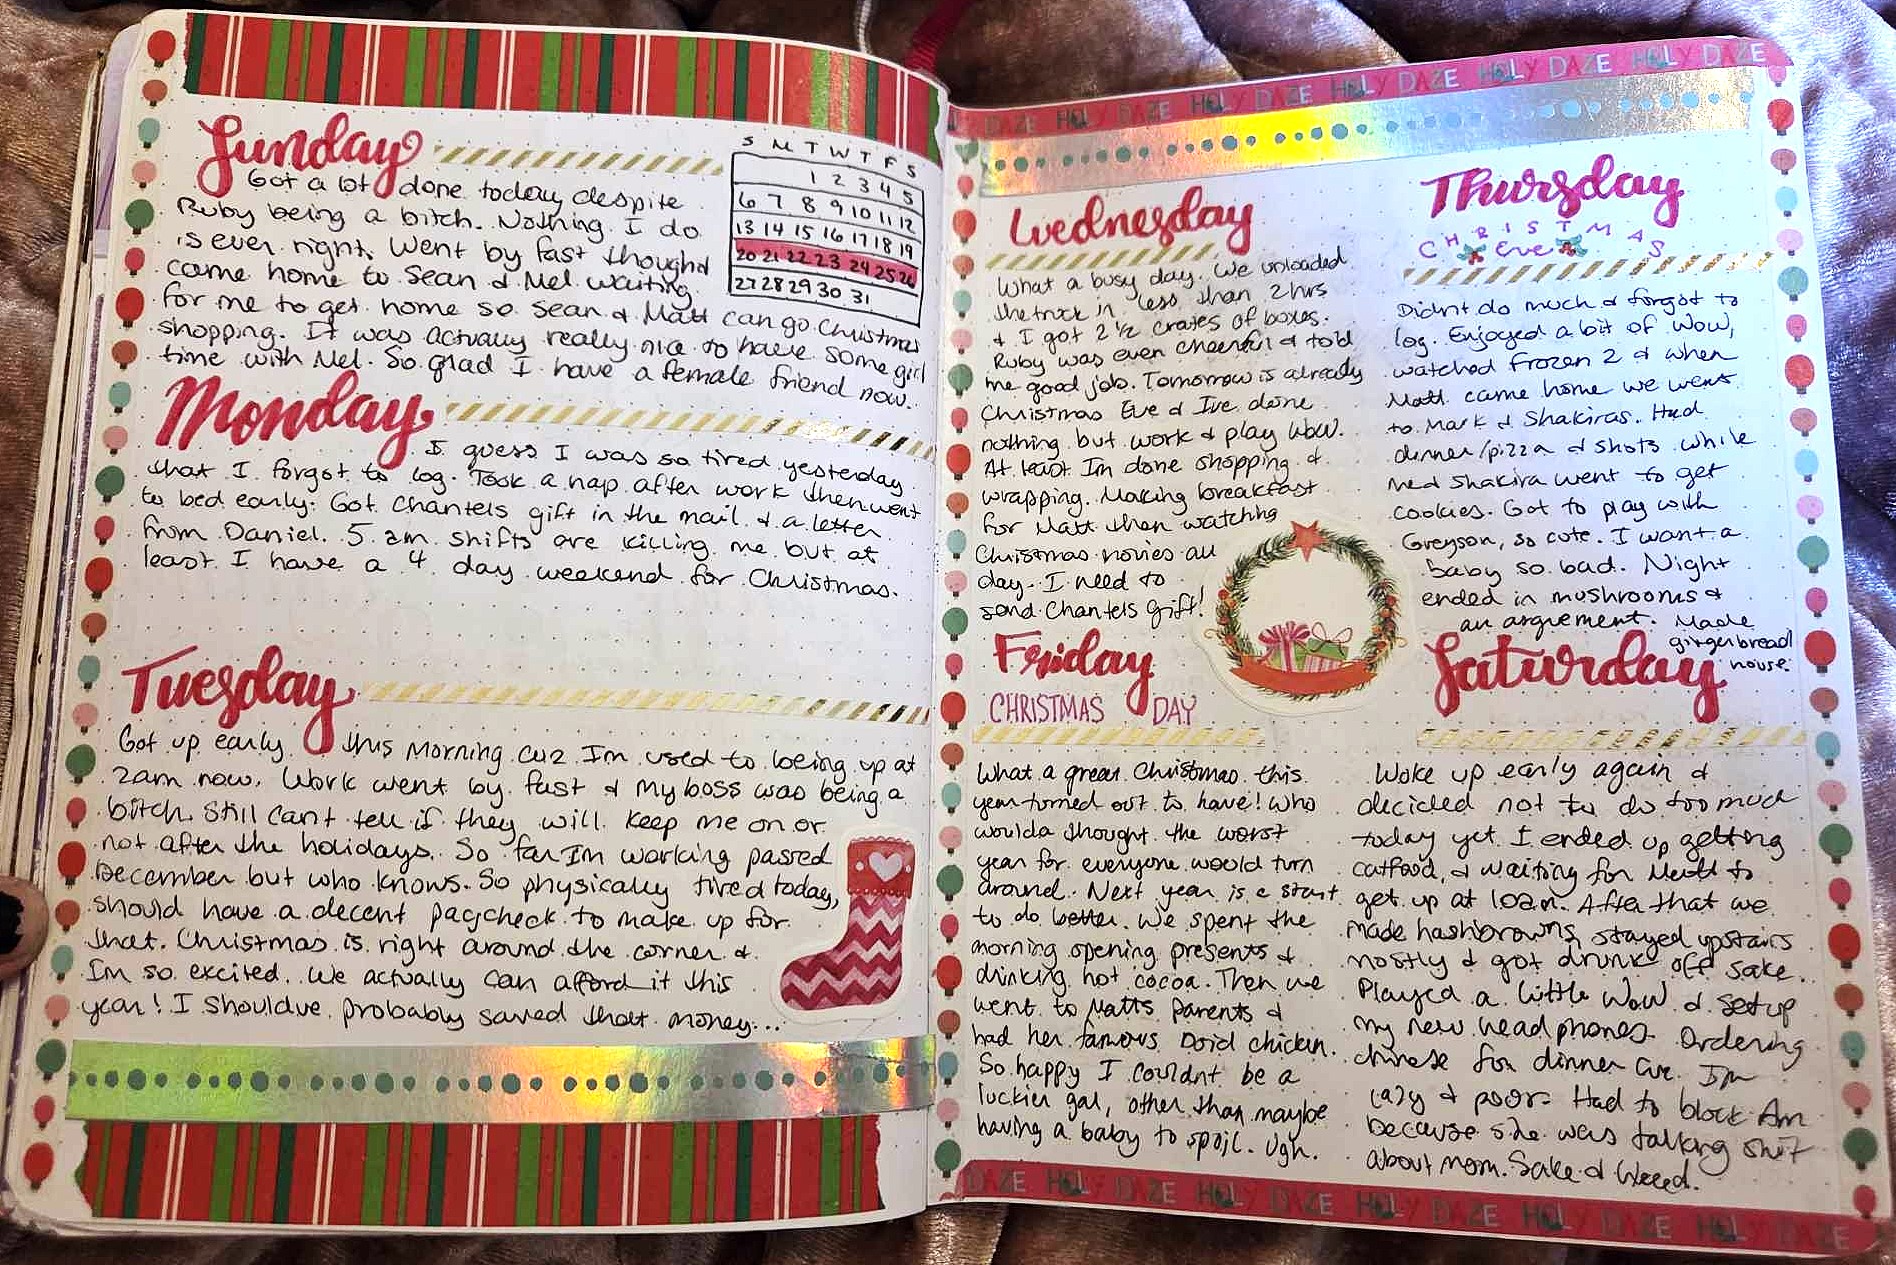 Sunday
Got a lot done today despite
Ruby being a bitch. Nothing I do
is ever right. Went by fast though
came home to Sean & Mel waiting
for me to get home so Sean & Matt can go Christmas
shopping. It was actually really nice to have some girl
time with Mel. So glad I have a female friend now.
S M T W T F S
1 2 3 4 5
6 7 8 9 10 11 12
13 14 15 16 17 18 19
20 21 22 23 24 25 26
27 28 29 30 31
Monday
I guess I was so tired yesterday
that I forgot to log. Took a nap after work then went
to bed early. Got Chantels gift in the mail & a letter
from Daniel. 5 am shifts are killing me but at
least I have a 4 day weekend for Christmas.
Tuesday
Got up early this morning cuz Im used to being up at
2am now. Work went by fast & my boss was being a
bitch. Still cant tell if they will keep me on or
not after the holidays. So far Im working passed
December but who knows. So physically tired today,
should have a decent paycheck to make up for
that. Christmas is right around the corner &
Im so excited. We actually can afford it this
year! I shouldve probably saved that money...
HOLY DAZE HOLY DAZE HOLY DAZE HOLY DAZE HOLY DAZE
Wednesday
What a busy day. We unloaded
the truck in less than 2hrs
& I got 2 1/2 crates of boxes.
Ruby was even cheerful & told
me good job. Tomorrow is already
Christmas Eve & Ive done
nothing but work & play WoW.
At least Im done shopping &
wrapping. Making breakfast
for Matt then watching
Christmas movies all
day. I need to
send Chantels gift!
Thursday
CHRISTMAS
Eve
Didnt do much & forgot to
log. Enjoyed a bit of WoW,
watched Frozen 2 & when
Matt came home we went
to Mark & Shakiras. Had
dinner/pizza & shots while
me & Shakira went to get
cookies. Got to play with
Greyson, so cute. I want a
baby so bad. Night
ended in mushrooms &
an arguement. Made
gingerbread
house.
Friday
CHRISTMAS DAY
What a great Christmas this
year turned out to have! Who
woulda thought the worst
year for everyone would turn
around. Next year is a start
to do better. We spent the
morning opening presents &
drinking hot cocoa. Then we
went to Matts parents &
had her famous chicken.
So happy I couldnt be a
luckier gal, other than maybe
having a baby to spoil. Ugh.
Saturday
Woke up early again &
decided not to do too much
today yet I ended up getting
catfood, & waiting for Matt to
get up at 10am. After that we
made hashbrowns, stayed upstairs
mostly & got drunk off sake.
Played a little WoW & setup
my new headphones. Ordering
chinese for dinner cuz Im
lazy & poor. Had to block Am
because she was talking shit
about mom. Sake & Weed.
DAZE HOLY DAZE HOLY DAZE HOLY DAZE HOLY DAZE HOLY DAZE